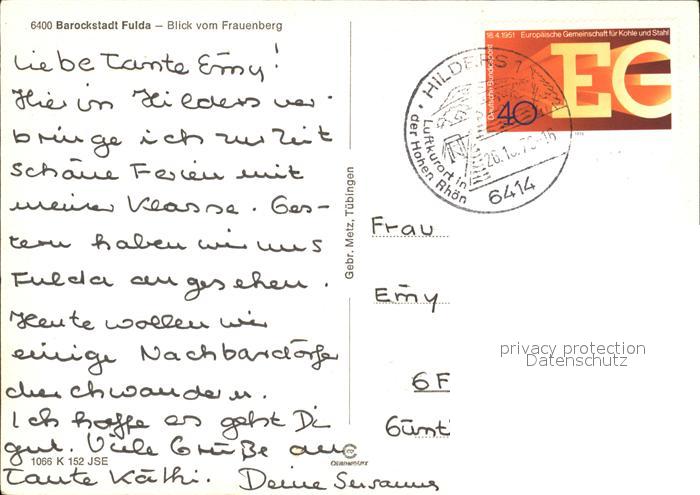 6400 Barockstadt Fulda – Blick vom Frauenberg
Liebe Tante Emy!
Hier in Hilders ver-
bringe ich zur Zeit
schöne Ferien mit
meiner Klasse. Ges-
tern haben wir uns
Fulda angesehen.
Heute wollen wir
einige Nachbardörfer
durchwandern.
Ich hoffe es geht Dir
gut. Viele Grüße an
Tante Käthi. Deine Susanne
1066 K 152 JSE
Gebr. Metz, Tübingen
18.4.1951 Europäische Gemeinschaft für Kohle und Stahl
Deutsche Bundespost
40
EG
HILDERS 1
Luftkurort in
der Hohen Rhön
6414
Frau
Emy
6F
Günt
privacy protection
Datenschutz